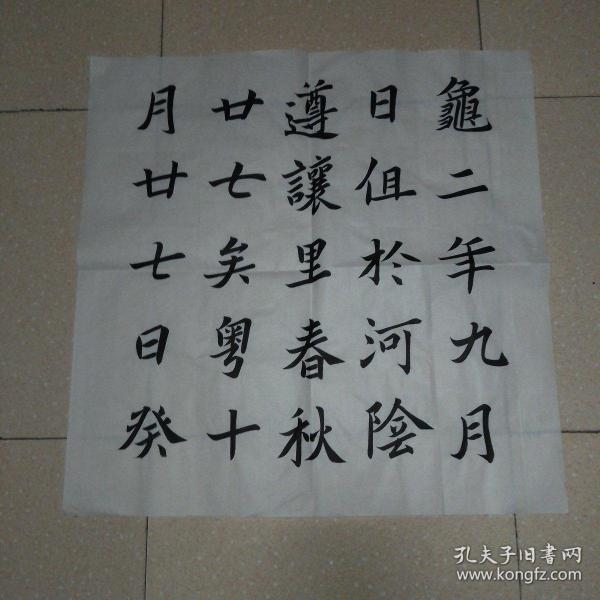 龜二年九月
日伹於河陰
遵讓里春秋
廿七矣粵十
月廿七日癸
孔夫子旧書网
www.kongfz.com